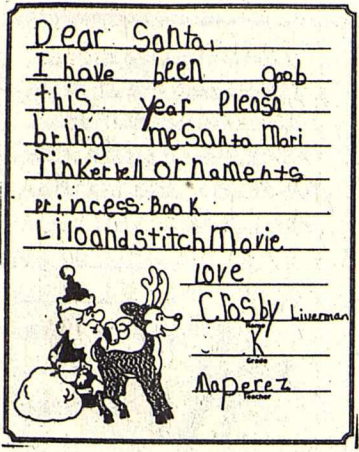 Dear Santa,
I have been goob
this year Pleasa
bring me Santa Mari
Tinkerbell ornaments
princess Book
Lilo and stitch Movie
love
Crosby Liverman
Name
K
Grade
Maperez
Teacher